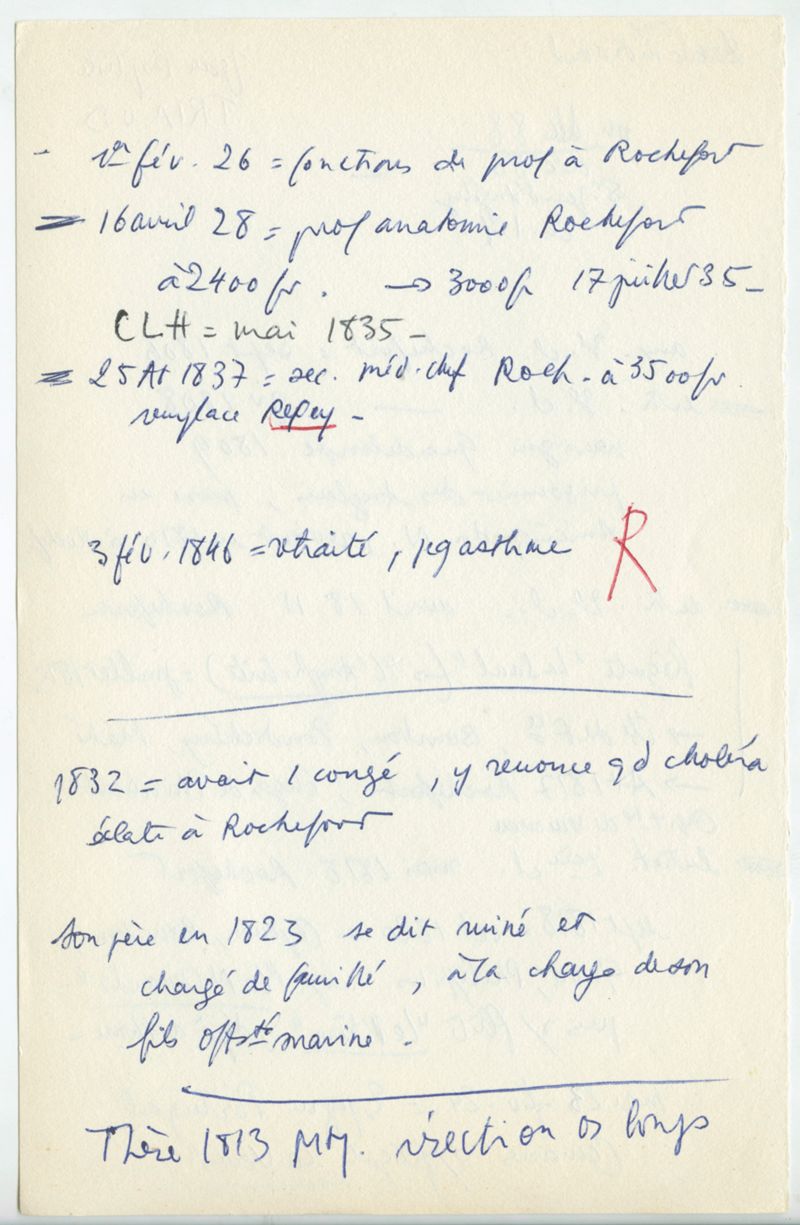 - 1er fév. 26 = fonctions de prof à Rochefort
= 16 avril 28 = prof anatomie Rochefort
à 2400 fr. → 3000 fr 17 juillet 35 -
CLH = mai 1835 -
= 25 At 1837 = sec. méd. chef Roch. à 3500 fr.
remplace Repey -
3 fév. 1846 = retraité, asthme R
1832 = avait 1 congé, y renonce qd choléra
éclate à Rochefort
Son père en 1823 se dit ruiné et
chargé de famille, à la charge de son
fils off sté marine.
Thèse 1813 MM. résection os longs